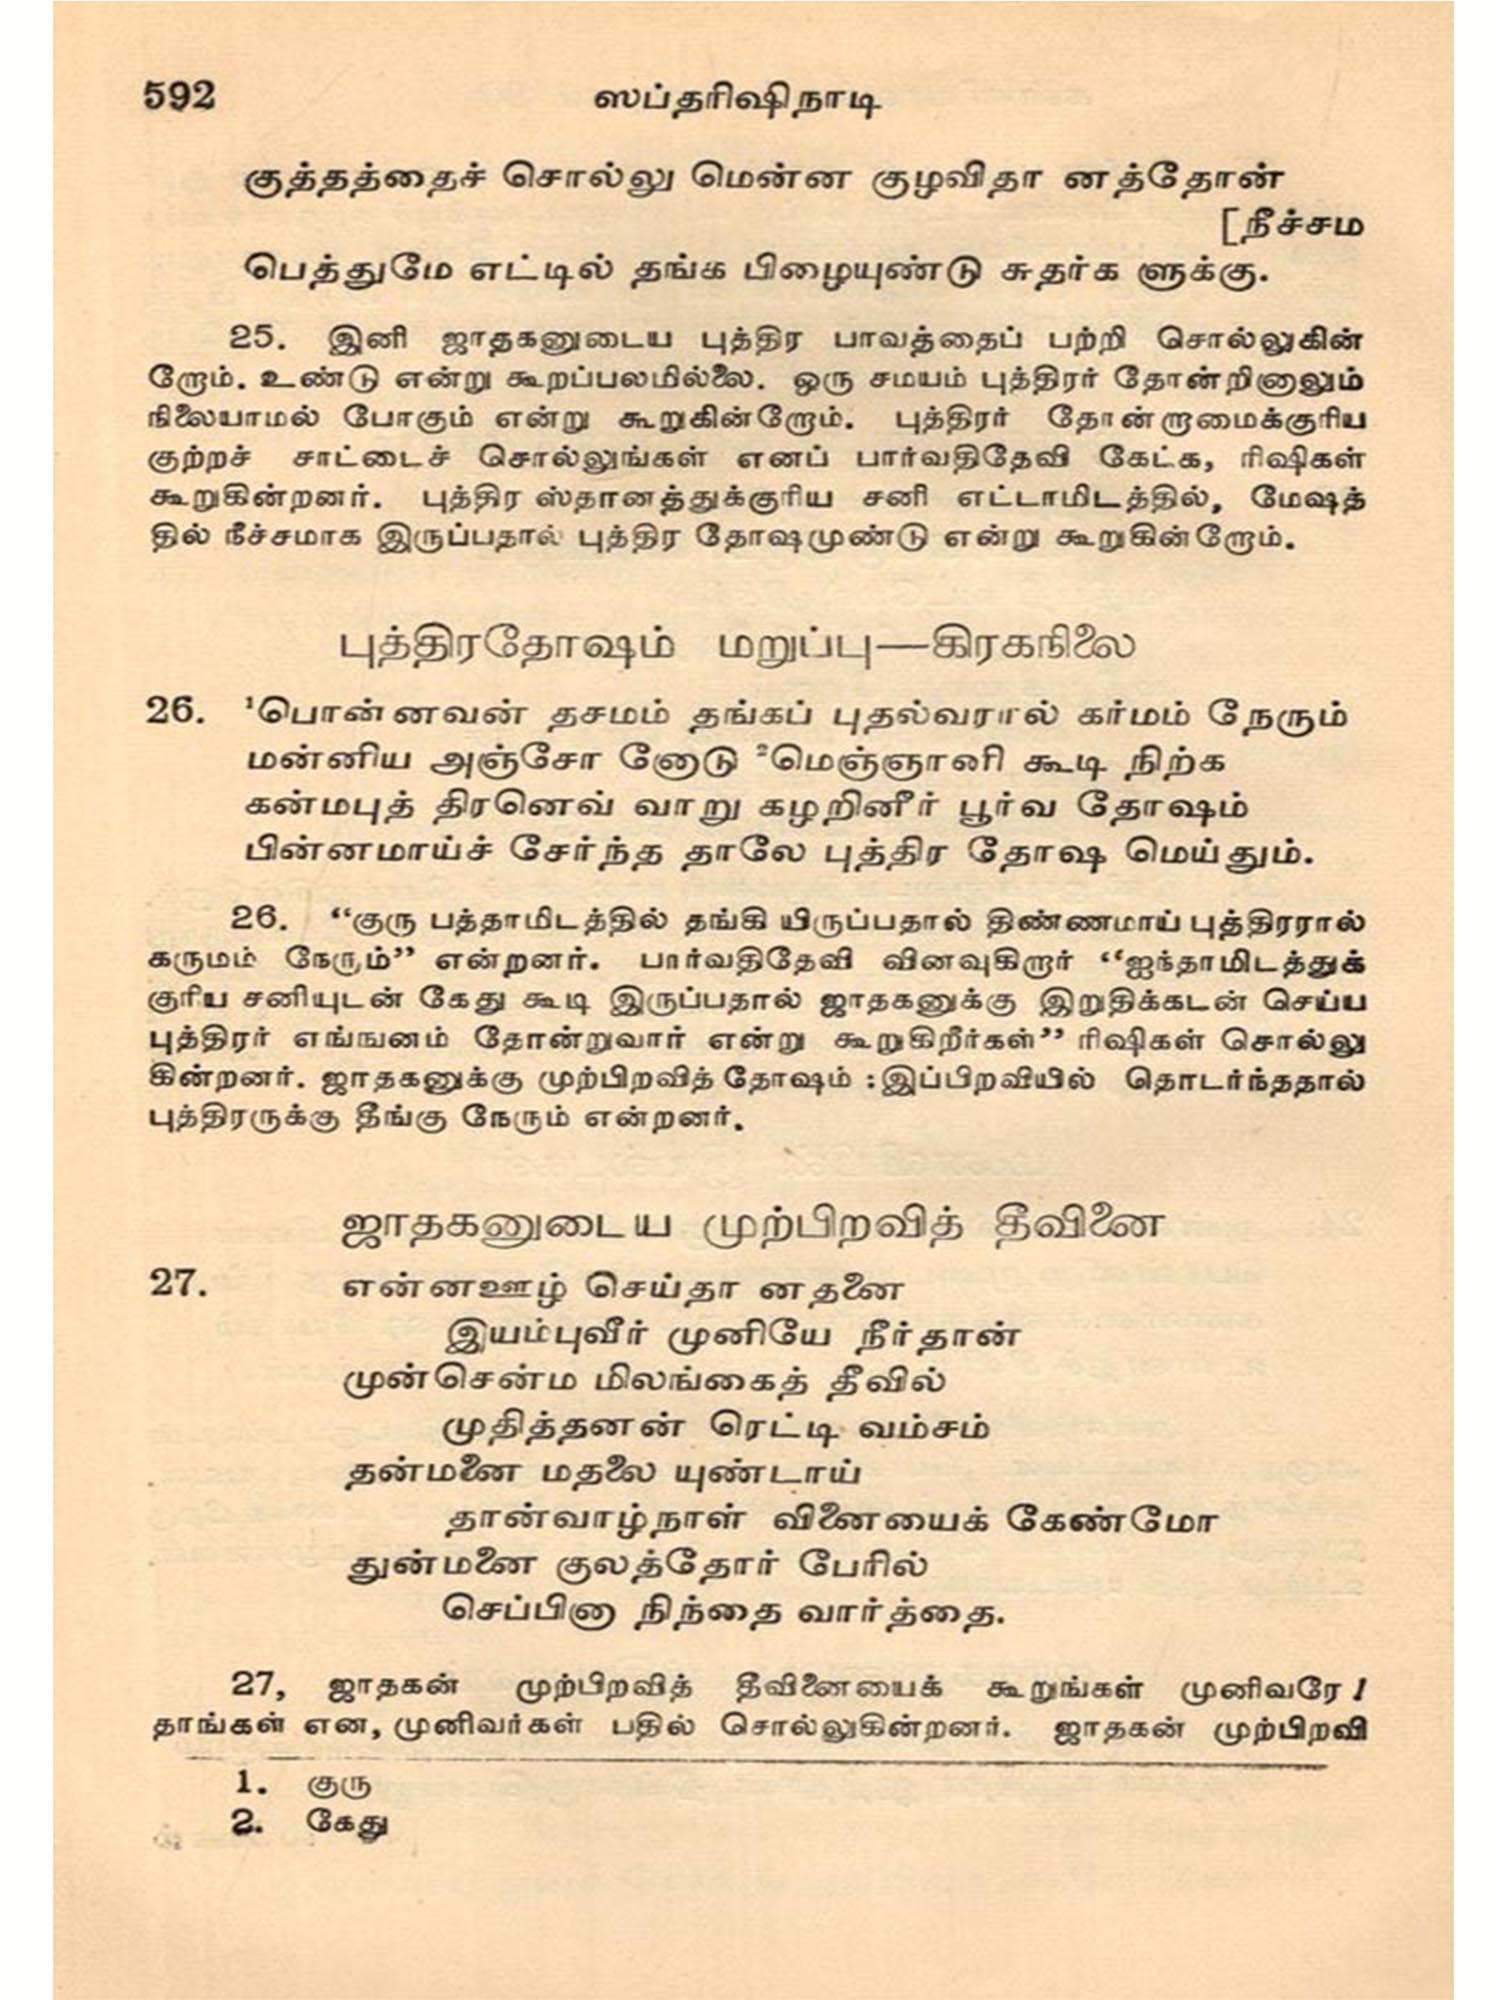 592 ஸப்தரிஷிநாடி
குத்தத்தைச் சொல்லு மென்ன குழவிதா னத்தோன்
[நீச்சம
பெத்துமே எட்டில் தங்க பிழையுண்டு சுதர்க ளுக்கு.
25. இனி ஜாதகனுடைய புத்திர பாவத்தைப் பற்றி சொல்லுகின்
றோம். உண்டு என்று கூறப்பலமில்லை. ஒரு சமயம் புத்திரர் தோன்றினாலும்
நிலையாமல் போகும் என்று கூறுகின்றோம். புத்திரர் தோன்றாமைக்குரிய
குற்றச் சாட்டைச் சொல்லுங்கள் எனப் பார்வதிதேவி கேட்க, ரிஷிகள்
கூறுகின்றனர். புத்திர ஸ்தானத்துக்குரிய சனி எட்டாமிடத்தில், மேஷத்
தில் நீச்சமாக இருப்பதால் புத்திர தோஷமுண்டு என்று கூறுகின்றோம்.
புத்திரதோஷம் மறுப்பு—கிரகநிலை
26. ¹பொன்னவன் தசமம் தங்கப் புதல்வரால் கர்மம் நேரும்
மன்னிய அஞ்சோ னோடு ²மெஞ்ஞானி கூடி நிற்க
கன்மபுத் திரனெவ் வாறு கழறினீர் பூர்வ தோஷம்
பின்னமாய்ச் சேர்ந்த தாலே புத்திர தோஷ மெய்தும்.
26. “குரு பத்தாமிடத்தில் தங்கி யிருப்பதால் திண்ணமாய் புத்திரரால்
கருமம் நேரும்” என்றனர். பார்வதிதேவி வினவுகிறார் “ஐந்தாமிடத்துக்
குரிய சனியுடன் கேது கூடி இருப்பதால் ஜாதகனுக்கு இறுதிக்கடன் செய்ய
புத்திரர் எங்ஙனம் தோன்றுவார் என்று கூறுகிறீர்கள்” ரிஷிகள் சொல்லு
கின்றனர். ஜாதகனுக்கு முற்பிறவித் தோஷம் :இப்பிறவியில் தொடர்ந்ததால்
புத்திரருக்கு தீங்கு நேரும் என்றனர்.
ஜாதகனுடைய முற்பிறவித் தீவினை
27. என்னஊழ் செய்தா னதனை
இயம்புவீர் முனியே நீர்தான்
முன்சென்ம மிலங்கைத் தீவில்
முதித்தனன் ரெட்டி வம்சம்
தன்மனை மதலை யுண்டாய்
தான்வாழ்நாள் வினையைக் கேண்மோ
துன்மனை குலத்தோர் பேரில்
செப்பினா நிந்தை வார்த்தை.
27, ஜாதகன் முற்பிறவித் தீவினையைக் கூறுங்கள் முனிவரே !
தாங்கள் என, முனிவர்கள் பதில் சொல்லுகின்றனர். ஜாதகன் முற்பிறவி
1. குரு
2. கேது